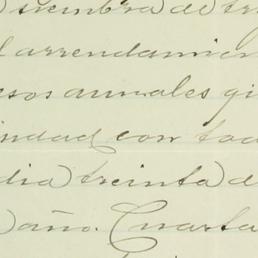 siembra de tr
l arrendamien
esos anuales q
indad con tod
dia treinta d
año. Cuarta